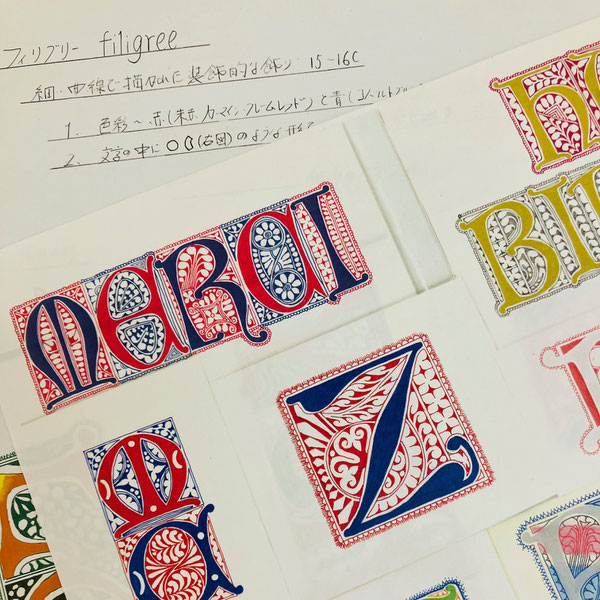 フィリグリー filigree
細い曲線で描かれた装飾的な飾り 15~16C
1. 色彩~赤(朱、カーマイン、フレームレッド)と青(コバルトブル
2. 文字の中に〇〇(右図)のような形
MERCI
Z
M
a
h
BI